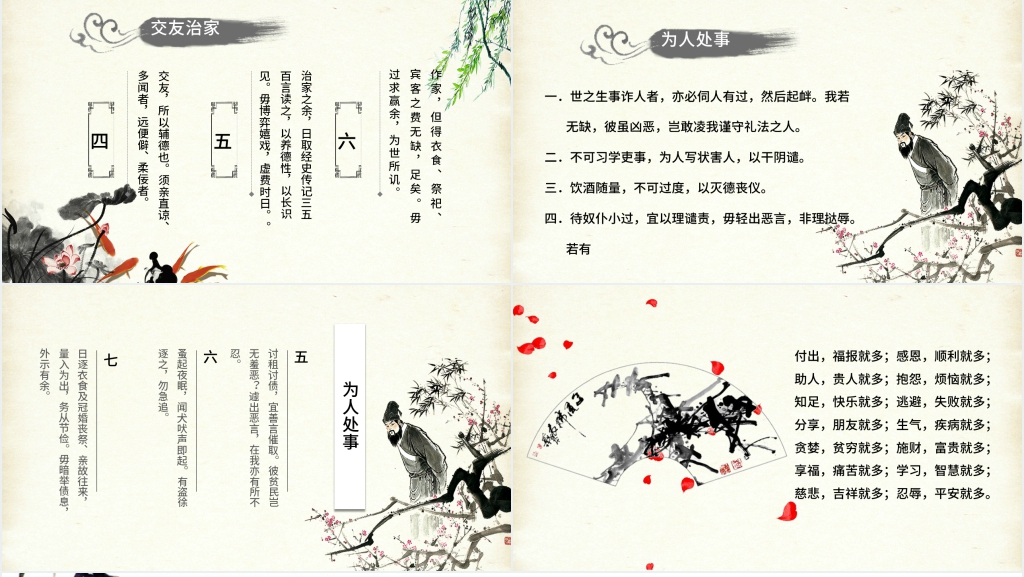 交友治家
四
交友，所以辅德也。须亲直谅、
多闻者，远便僻、柔佞者。
五
治家之余，日取经史传记三五
百言读之，以养德性，以长识
见。毋博弈嬉戏，虚费时日。
六
作家，但得衣食、祭祀、
宾客之费无缺，足矣。毋
过求赢余，为世所讥。
为人处事
一．世之生事诈人者，亦必伺人有过，然后起衅。我若
无缺，彼虽凶恶，岂敢凌我谨守礼法之人。
二．不可习学吏事，为人写状害人，以干阴谴。
三．饮酒随量，不可过度，以灭德丧仪。
四．待奴仆小过，宜以理谴责，毋轻出恶言，非理挞辱。
若有
为人处事
五
讨租讨债，宜善言催取。彼贫民岂
无羞恶？遽出恶言，在我亦有所不
忍。
六
蚤起夜眠，闻犬吠声即起。有盗徐
逐之，勿急追。
七
日逐衣食及冠婚丧祭、亲故往来，
量入为出，务从节俭。毋暗举债息，
外示有余。
付出，福报就多；感恩，顺利就多；
助人，贵人就多；抱怨，烦恼就多；
知足，快乐就多；逃避，失败就多；
分享，朋友就多；生气，疾病就多；
贪婪，贫穷就多；施财，富贵就多；
享福，痛苦就多；学习，智慧就多；
慈悲，吉祥就多；忍辱，平安就多。